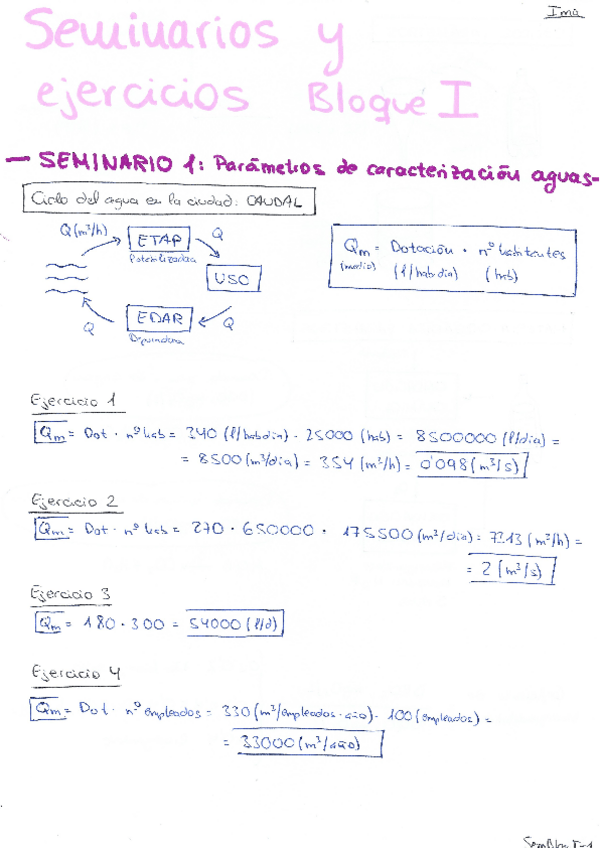 Ima
Seminarios y
ejercicios Bloque I
— SEMINARIO 1: Parámetros de caracterización aguas-
Ciclo del agua en la ciudad: CAUDAL
Q(m³/h)
ETAP
Potabilizadora
Q
USO
Q
EDAR
Depuradora
Q
Qm = Dotación · nº habitantes
(medio) (l/hab dia) (hab)
Ejercicio 1
Qm = Dot · nº hab = 340 (l/hab dia) · 25000 (hab) = 8500000 (l/dia) =
= 8500 (m³/dia) = 354 (m³/h) = 0'098 (m³/s)
Ejercicio 2
Qm = Dot · nº hab = 270 · 650000 · 175500 (m³/dia) = 7313 (m³/h) =
= 2 (m³/s)
Ejercicio 3
Qm = 180 · 300 = 54000 (l/d)
Ejercicio 4
Qm = Dot · nº empleados = 330 (m³/empleados · año) · 100 (empleados) =
= 33000 (m³/año)